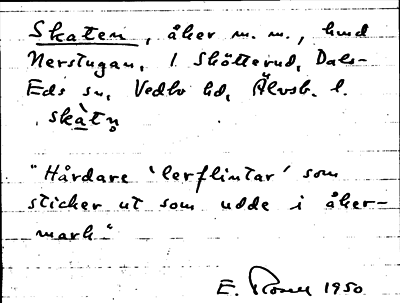 Skaten, åker m. m., hmd
Nerstugan, 1 Skötterud, Dals-
Eds sn, Vedbo hd, Älvsb. l.
skàtn̥
"Hårdare 'lerflintar' som
sticker ut som udde i åker-
mark"
E. Rosell 1950